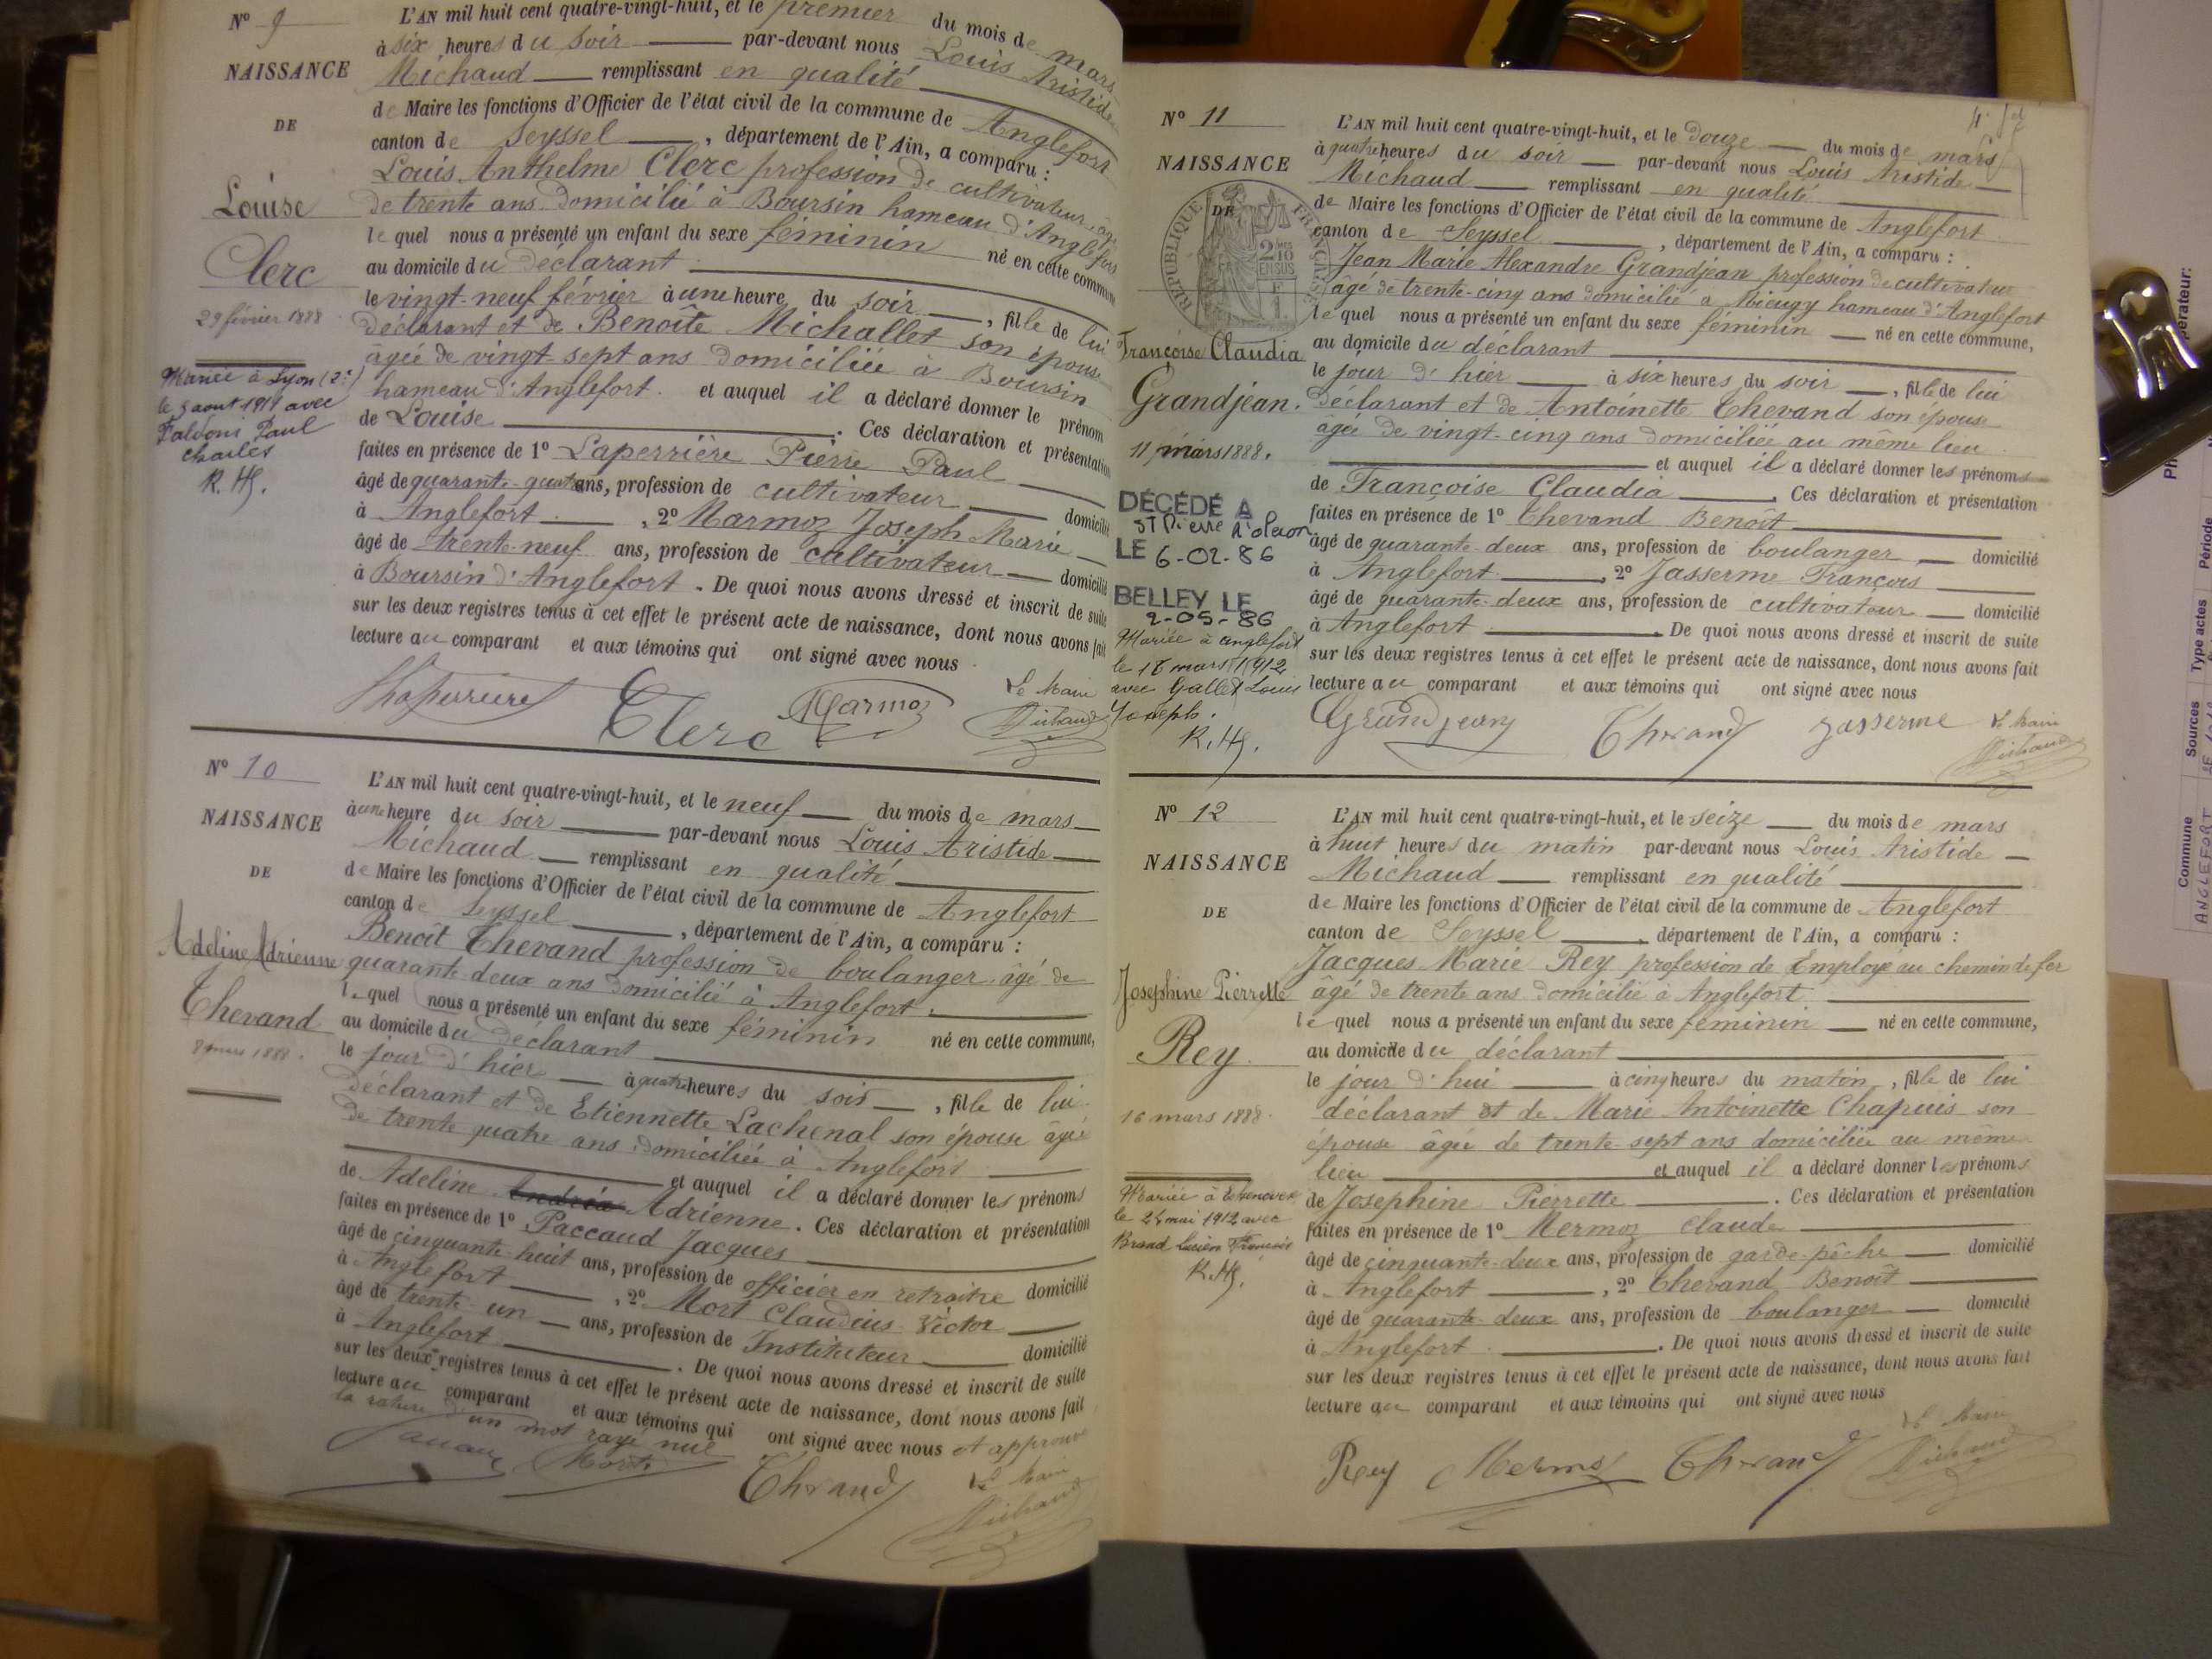 N° 9
NAISSANCE
DE
Louise
Clerc
29 février 1888
Mariée à Lyon (2e)
le 5 aout 1911 avec
Faldoni Paul
Charles
L'AN mil huit cent quatre-vingt-huit, et le premier du mois de mars
à six heures du soir par-devant nous Louis Aristide
Michaud remplissant en qualité
de Maire les fonctions d'Officier de l'état civil de la commune de Anglefort
canton de Seyssel, département de l'Ain, a comparu :
Louis Anthelme Clerc profession de cultivateur, âgé
de trente ans domicilié à Boursin hameau d'Anglefort
lequel nous a présenté un enfant du sexe féminin né en cette commune
au domicile du déclarant
le vingt-neuf février à une heure du soir, fille de lui
déclarant et de Benoîte Michallet son épouse
âgée de vingt-sept ans domiciliée à Boursin
hameau d'Anglefort. et auquel il a déclaré donner le prénom
de Louise. Ces déclaration et présentation
faites en présence de 1° Laperrière Pierre Paul
âgé de quarante-quatre ans, profession de cultivateur domicilié
à Anglefort, 2° Marmoz Joseph Marie
âgé de trente-neuf ans, profession de cultivateur domicilié
à Boursin d'Anglefort. De quoi nous avons dressé et inscrit de suite
sur les deux registres tenus à cet effet le présent acte de naissance, dont nous avons fait
lecture au comparant et aux témoins qui ont signé avec nous
Clerc Marmoz Le Maire
Michaud
N° 10
NAISSANCE
DE
Adeline Adrienne
Thevand
8 mars 1888.
L'AN mil huit cent quatre-vingt-huit, et le neuf du mois de mars
à une heure du soir par-devant nous Louis Aristide
Michaud remplissant en qualité
de Maire les fonctions d'Officier de l'état civil de la commune de Anglefort
canton de Seyssel, département de l'Ain, a comparu :
Benoît Thevand profession de boulanger, âgé de
quarante-deux ans domicilié à Anglefort.
lequel nous a présenté un enfant du sexe féminin né en cette commune,
au domicile du déclarant
le jour d'hier à quatre heures du soir, fille de lui
déclarant et de Etiennette Lachenal son épouse âgée
de trente quatre ans domiciliée à Anglefort
et auquel il a déclaré donner les prénoms
de Adeline Andréa Adrienne. Ces déclaration et présentation
faites en présence de 1° Paccaud Jacques
âgé de cinquante-huit ans, profession de officier en retraite domicilié
à Anglefort, 2° Mort Claudius Victor
âgé de trente-un ans, profession de Instituteur domicilié
à Anglefort. De quoi nous avons dressé et inscrit de suite
sur les deux registres tenus à cet effet le présent acte de naissance, dont nous avons fait
lecture au comparant et aux témoins qui ont signé avec nous et approuvé
la rature d'un mot rayé nul
Mort Thevand Le Maire
Michaud
N° 11
NAISSANCE
DE
RÉPUBLIQUE FRANÇAISE
2/10
EN SUS
Françoise Claudia
Grandjean.
11 mars 1888.
DÉCÉDÉ A
St Pierre d'Oleron
LE 6-02-86
BELLEY LE
2-05-86
Mariée à Anglefort
le 16 mars 1912
avec Gallet Louis
Joseph.
L'AN mil huit cent quatre-vingt-huit, et le douze du mois de mars
à quatre heures du soir par-devant nous Louis Aristide
Michaud remplissant en qualité
de Maire les fonctions d'Officier de l'état civil de la commune de Anglefort
canton de Seyssel, département de l'Ain, a comparu :
Jean Marie Alexandre Grandjean profession de cultivateur
âgé de trente-cinq ans domicilié à Mieugy hameau d'Anglefort
lequel nous a présenté un enfant du sexe féminin né en cette commune,
au domicile du déclarant
le jour d'hier à six heures du soir, fille de lui
déclarant et de Antoinette Thevand son épouse
âgée de vingt-cinq ans domiciliée au même lieu
et auquel il a déclaré donner les prénoms
de Françoise Claudia. Ces déclaration et présentation
faites en présence de 1° Thevand Benoît
âgé de quarante-deux ans, profession de boulanger, domicilié
à Anglefort, 2° Jasserme François
âgé de quarante-deux ans, profession de cultivateur domicilié
à Anglefort. De quoi nous avons dressé et inscrit de suite
sur les deux registres tenus à cet effet le présent acte de naissance, dont nous avons fait
lecture au comparant et aux témoins qui ont signé avec nous
Grandjean Thevand Jasserme Le Maire
Michaud
N° 12
NAISSANCE
DE
Josephine Pierrette
Rey
16 mars 1888.
le 24 mai 1912 avec
Braud Lucien François
L'AN mil huit cent quatre-vingt-huit, et le seize du mois de mars
à huit heures du matin par-devant nous Louis Aristide
Michaud remplissant en qualité
de Maire les fonctions d'Officier de l'état civil de la commune de Anglefort
canton de Seyssel, département de l'Ain, a comparu :
Jacques Marie Rey profession de Employé au chemin de fer
âgé de trente ans domicilié à Anglefort
lequel nous a présenté un enfant du sexe féminin né en cette commune,
au domicile du déclarant
le jour d'hui à cinq heures du matin, fille de lui
déclarant et de Marie Antoinette Chapuis son
épouse âgée de trente-sept ans domiciliée au même
lieu et auquel il a déclaré donner les prénoms
de Josephine Pierrette. Ces déclaration et présentation
faites en présence de 1° Mermoz Claude
âgé de cinquante-deux ans, profession de garde-pêche domicilié
à Anglefort, 2° Thevand Benoît
âgé de quarante-deux ans, profession de boulanger domicilié
à Anglefort. De quoi nous avons dressé et inscrit de suite
sur les deux registres tenus à cet effet le présent acte de naissance, dont nous avons fait
lecture au comparant et aux témoins qui ont signé avec nous
Rey Mermoz Thevand Le Maire
Michaud
Commune Sources Type actes Période
ANGLEFORT